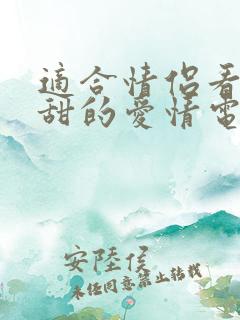 適合情侶看
甜的愛情電
安陸侯
未经同意禁止转载